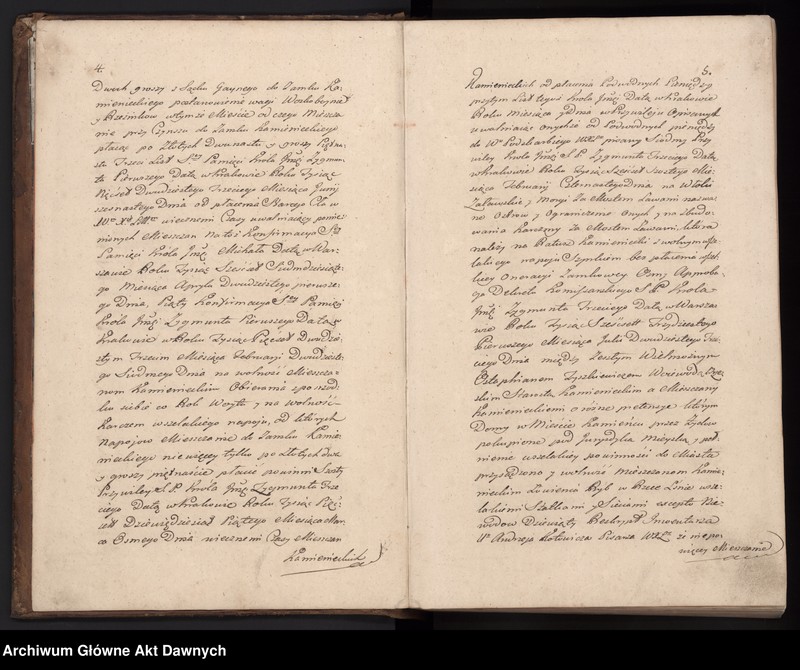 4.
Dwuch groszy z Sądu Gaynego do Zamku Ka-
mienieckiego postanowione wagi
y w tymże Mieście od czego Miesza-
nie przy Czynszu do Zamku Kamienieckiego
płacą po Złotych Dwunastu y groszy
Trzeci List S. Pamięci Króla Jmci Zygmun-
ta Pierwszego Datą w Krakowie Roku Tysiąc
Pięćset Dwudziestego Trzeciego Miesiąca Junij
szesnastego Dnia od płacenia Starego Cła w
wiecznemi Czasy uwalniaiący
Mieszczan Na toż Konfirmacya
Pamięci Króla Jmci Michała Datą w War-
szawie Roku Tysiąc Sześćset Siedmdziesiąte-
go Miesiąca Apryla Dwudziestego pierwsze-
go Dnia, Piąty Konfirmacya Pamięci
Króla Jmci Zygmunta Pierwszego Datą w
Krakowie w Roku Tysiąc Pięćset Dwudzie-
stym Trzecim Miesiąca Februarij Dwudzieste-
go Siódmego Dnia na wolność Mieszcza-
nom Kamienieckim Obierania
siebie co Rok Woyta y na wolność
Karczem wszelakiego napoju, od których
Napojow Mieszczanie do Zamku Kamie-
nieckiego niewięcey tylko po Złotych dwa
y groszy piętnaście płacić powinni Szosty
Przywiley S. P. Króla Jmci Zygmunta Trze-
ciego Datą w Krakowie Roku Tysiąc Pięć-
set Dziewiędziesiąt Piątego Miesiąca Mar-
ca Osmego Dnia wiecznemi Czasy Mieszczan
Kamienieckich
5.
Kamienieckich od płacenia Podwodnych Pieniędzy
przytym List tegoż Króla Jmci Datą w Krakowie
Roku Miesiąca y dnia w Przywileju Opisanych
uwalniaiąc Onychże od Podwodnych pieniędzy
do W. Podskarbiego pisany Siódmy Przy-
wiley Króla Jmci S. P. Zygmunta Trzeciego Datą
w Krakowie Roku Tysiąc Sześćset Szostego Mie-
siąca Februarij Czternastego Dnia na
Zabawskie y Morgi za Mostem Ławami nazwa-
ne Ostrow y Ograniczenie Onych y na zbudo-
wania Karczmy za Mostem Ławami, która
należy na Ratusz Kamieniecki z wolnym
lakiego napoju Szynkiem bez płacenia
kiey Oneracyi Zamkowey Osmy Approba-
cya Dekretu Komissarskiego S. P. Króla
Jmci Zygmunta Trzeciego Datą w Warsza-
wie Roku Tysiąc Sześćset Trzydziestego
Pierwszego Miesiąca Julii Dwudziestego Trze-
ciego Dnia między Zeszłym Wielmożnym
Ostaphianem Tyszkiewiczem Woiewodą Brze-
skim Starostą Kamienieckim a Mieszczany
Kamienieckiemi o różne pretensye którym
Domy w Mieście Kamieńcu przez Żydow
pokupione pod Jurysdyką Mieyską y peł-
nienie wszelakiey powinności do Miasta
przysądzono y wolność Mieszczanom Kamie-
nieckim Łowienia Ryb w Rzece Lśnie wsze-
lakiemi Siatkami y Sieciami excepto Nie-
wodow Dziewiąty Reskrypt Inwentarza
W. Andrzeja Kotowicza Pisarza
więcey Mieszczanie
Archiwum Główne Akt Dawnych